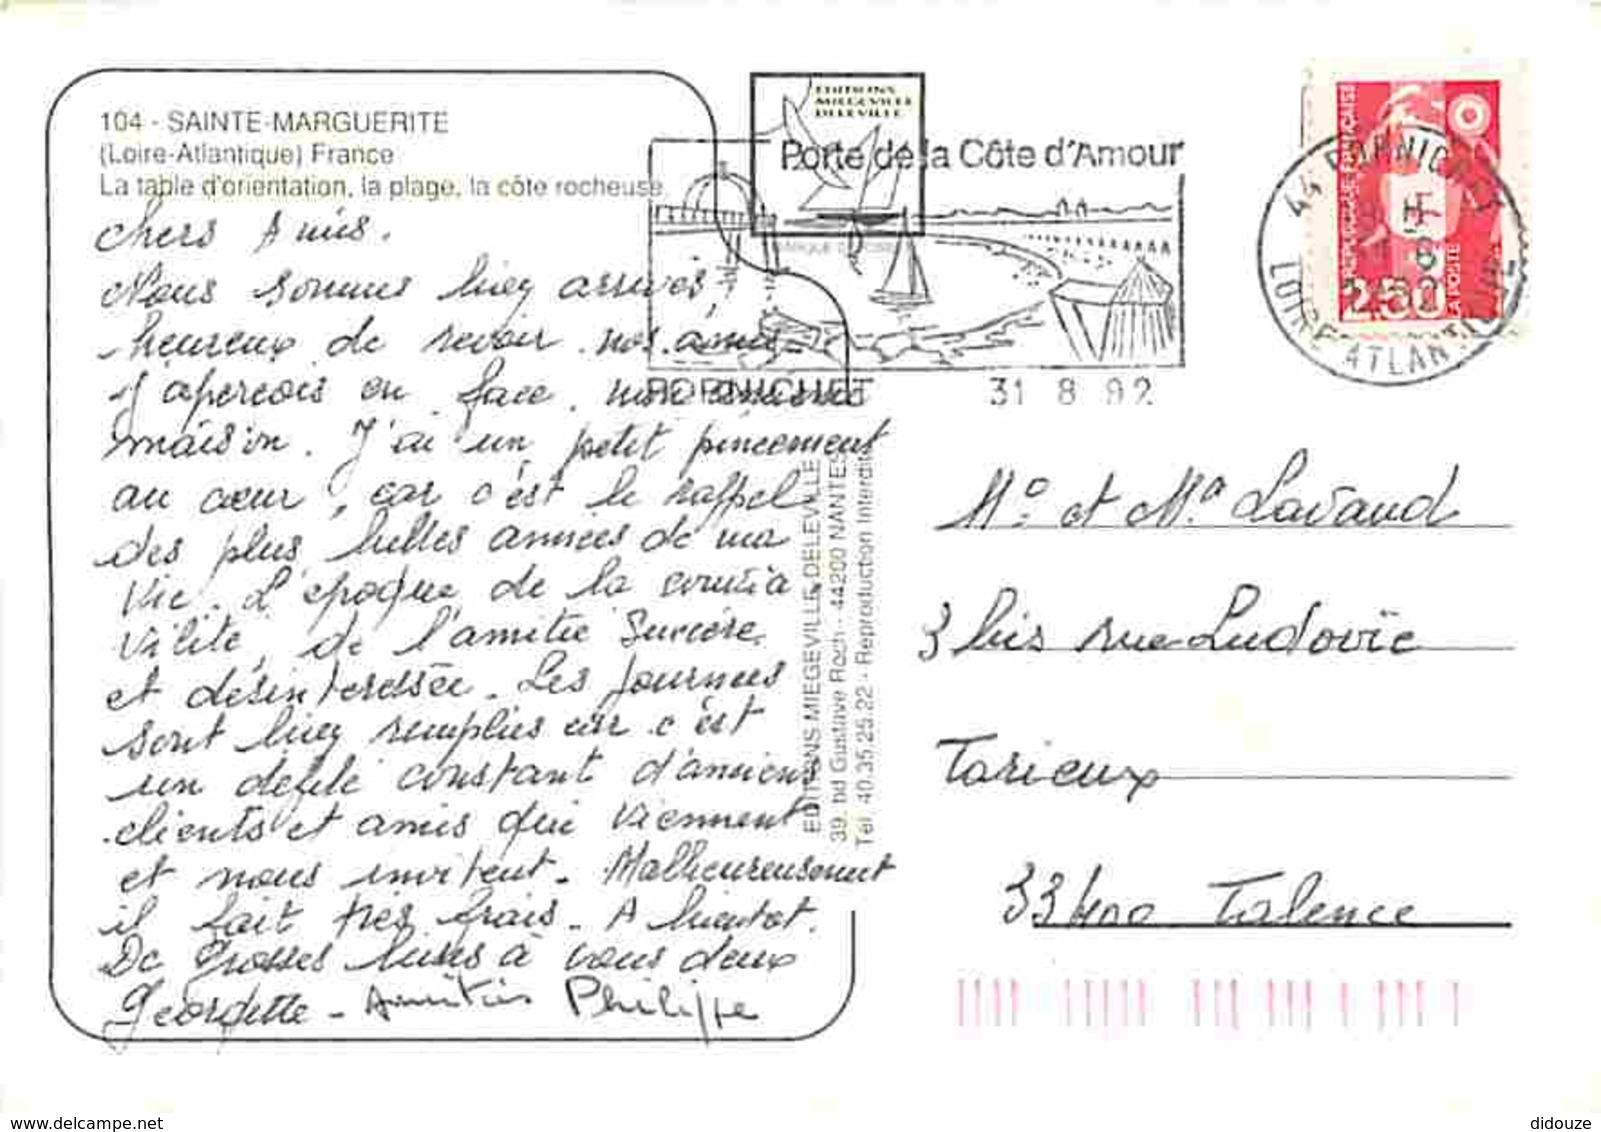 104 - SAINTE-MARGUERITE
(Loire-Atlantique) France
La table d'orientation, la plage, la côte rocheuse.
chers Amis.
Nous sommes bien arrivés,
heureux de revoir nos amis.
J'aperçois en face mon ancienne
maison. J'ai un petit pincement
au cœur, car c'est le rappel
des plus belles années de ma
vie. L'époque de la convivia
vilité, de l'amitié sincère
et désintéressée. Les journées
sont bien remplies car c'est
un défilé constant d'anciens
clients et amis qui viennent
et nous invitent. Malheureusement
il fait très frais. A bientôt.
De Grosses bises à vous deux
Georgette - Amitiés Philippe
EDITIONS
MIEGEVILLE
DELEVILLE
Porte de la Côte d'Amour
PORNICHET 31 8 92
EDITIONS MIEGEVILLE DELEVILLE
39, bd Gustave Roch - 44200 NANTES
Tél. 40.35.25.22 - Reproduction Interdite
RÉPUBLIQUE FRANÇAISE
2,50
LA POSTE
44 PORNICHET
LOIRE ATLANTIQUE
Mr et Me Lavaud
3 bis rue Ludovic
Tarieux
33400 Talence
didouze